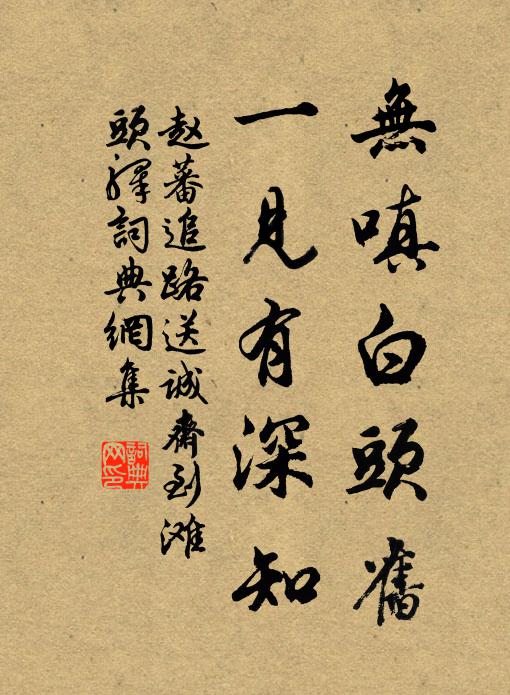 無嗔白頭舊
一見有深知
赵蕃追路送诚齋到滩
頭释詞典網集
詞典网印